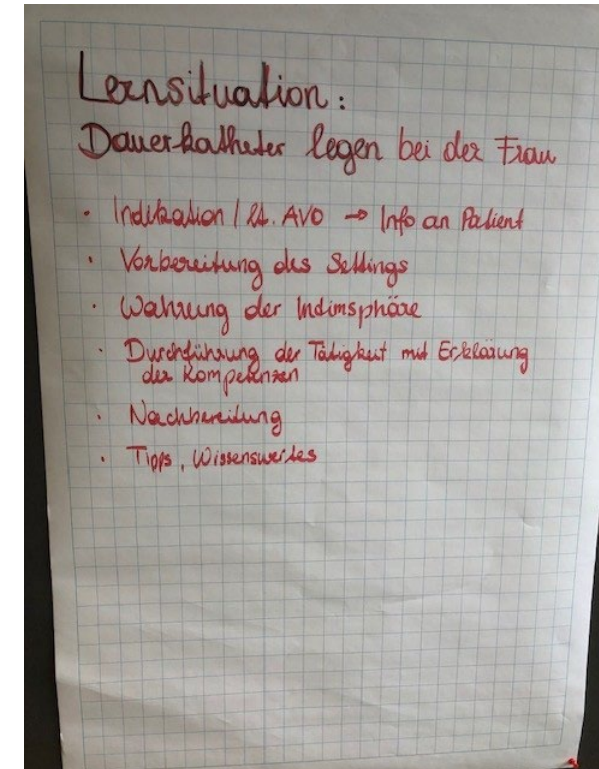 Lernsituation:
Dauerkatheter legen bei der Frau
· Indikation / lt. AVO → Info an Patient
· Vorbereitung des Settings
· Wahrung der Indimsphäre
· Durchführung der Tätigkeit mit Erklärung
der Kompetenzen
· Nachbereitung
· Tipps, Wissenswertes